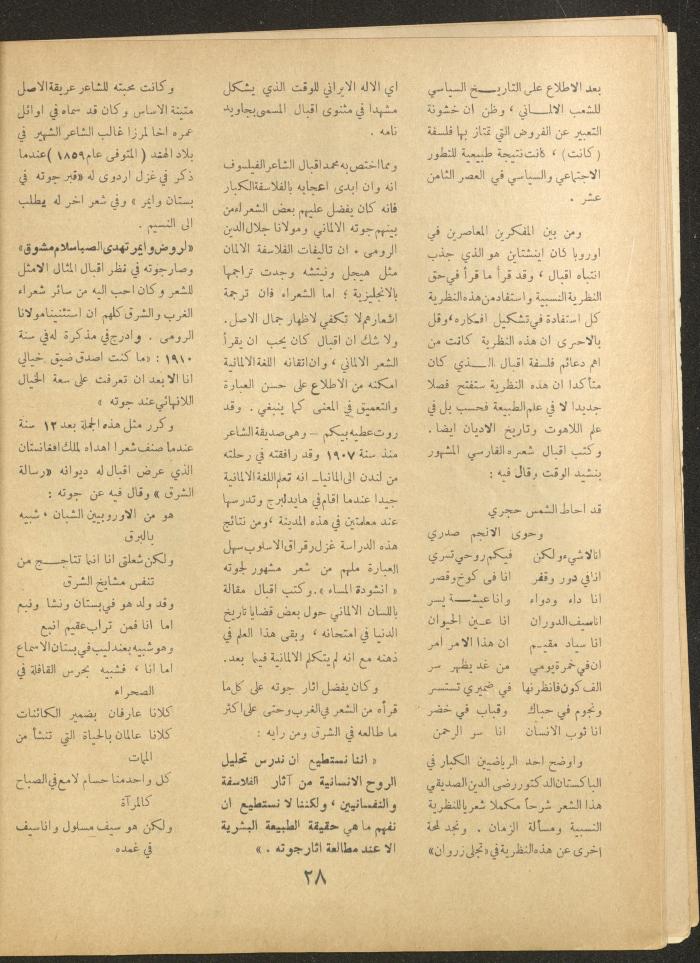 بعد الاطلاع على التاريخ السياسي
للشعب الالماني ، وظن ان خشونة
التعبير عن الفروض التي تمتاز بها فلسفة
(كانت) ، كانت نتيجة طبيعية للتطور
الاجتماعي والسياسي في العصر الثامن
عشر .
ومن بين المفكرين المعاصرين في
اوروبا كان اينشتاين هو الذي جذب
انتباه اقبال ، وقد قرأ ما قرأ في حق
النظرية النسبية واستفاد من هذه النظرية
كل استفادة في تشكيل افكاره، وقل
بالاحرى ان هذه النظرية كانت من
اهم دعائم فلسفة اقبال الذي كان
متأكدا ان هذه النظرية ستفتح فصلا
جديدا لا في علم الطبيعة فحسب بل في
علم اللاهوت وتاريخ الاديان ايضا .
وكتب اقبال شعره الفارسي المشهور
بنشيد الوقت وقال فيه :
قد احاط الشمس حجري
وحوى الانجم صدري
انا لاشيء ولكن فيكم روحي تسري
انا في دور وقفر انا في كوخ وقصر
انا داء ودواء وانا عيشة يسر
انا سيف الدوران انا عين الحيوان
انا سياد مقيم ان هذا الامر امر
ان في خمرة يومي من غد يظهر سر
الف كون فانظرنها في ضميري تستسر
ونجوم في حباك وقباب في خضر
انا ثوب الانسان انا سر الرحمن
واوضح احد الرياضيين الكبار في
الباكستان الدكتور رضى الدين الصديقي
هذا الشعر شرحاً مكملا شعريا للنظرية
النسبية ومسألة الزمان . ونجد لمحة
اخرى عن هذه النظرية في «تجلى زروان»
اي الاله الايراني للوقت الذي يشكل
مشهدا في مثنوى اقبال المسمى بجاويد
نامه .
ومما اختص به محمد اقبال الشاعر الفيلسوف
انه وان ابدى اعجابه بالفلاسفة الكبار
فانه كان يفضل عليهم بعض الشعراء من
بينهم جوته الالماني ومولانا جلال الدين
الرومى . ان تاليفات الفلاسفة الالمان
مثل هيجل ونيتشه وجدت تراجمها
بالانجليزية ؛ اما الشعراء فان ترجمة
اشعارهم لا تكفي لاظهار جمال الاصل .
ولا شك ان اقبال كان يحب ان يقرأ
الشعر الالماني ، وان اتقانه اللغة الالمانية
امكنه من الاطلاع على حسن العبارة
والتعميق في المعنى كما ينبغي . وقد
روت عطيه بيكم – وهى صديقة الشاعر
منذ سنة ١٩٠٧ وقد رافقته في رحلته
من لندن الى المانيا – انه تعلم اللغة الالمانية
جيدا عندما اقام في هايدلبرج وتدرسها
عند معلمتين في هذه المدينة ، ومن نتائج
هذه الدراسة غزل رقراق الاسلوب سهل
العبارة ملهم من شعر مشهور لجوته
« انشودة المساء » . وكتب اقبال مقالة
باللسان الالماني حول بعض قضايا تاريخ
الدنيا في امتحانه ، وبقى هذا العلم في
ذهنه مع انه لم يتكلم الالمانية فيما بعد .
وكان يفضل اثار جوته على كل ما
قرأه من الشعر في الغرب وحتى على اكثر
ما طالعه في الشرق ومن رايه :
« اننا نستطيع ان ندرس تحليل
الروح الانسانية من آثار الفلاسفة
والنفسانيين ، ولكننا لا نستطيع ان
نفهم ما هي حقيقة الطبيعة البشرية
الا عند مطالعة اثار جوته . »
وكانت محبته للشاعر عريقة الاصل
متينة الاساس وكان قد سماه في اوائل
عمره اخا لمرزا غالب الشاعر الشهير في
بلاد الهند ( المتوفى عام ١٨٥٩ ) عندما
ذكر في غزل اردوى له «قبر جوته في
بستان وايمر » وفي شعر اخر له يطلب
الى النسيم .
«لروض وايمر تهدى الصبا سلام مشوق»
وصار جوته في نظر اقبال المثال الامثل
للشعر وكان احب اليه من سائر شعراء
الغرب والشرق كلهم ان استثنينا مولانا
الرومى . وادرج في مذكرة له في سنة
١٩١٠ : «ما كنت اصدق ضيق خيالي
انا الا بعد ان تعرفت على سعة الخيال
اللانهائي عند جوته »
وكرر مثل هذه الجملة بعد ١٢ سنة
عندما صنف شعرا اهداه لملك افغانستان
الذي عرض اقبال له ديوانه «رسالة
الشرق » وقال فيه عن جوته :
هو من الاوروبيين الشبان ، شبيه
بالبرق
ولكن شعلتى انا انما تتاجج من
تنفس مشايخ الشرق
وقد ولد هو في بستان ونشا ونبع
اما انا فمن تراب عقيم انبع
وهو شبيه بعندليب في بستان الاسماع
اما انا ، فشبيه بجرس القافلة في
الصحراء
كلانا عارفان بضمير الكائنات
كلانا عالمان بالحياة التي تنشأ من
الممات
كل واحد منا حسام لامع في الصباح
كالمرآة
ولكن هو سيف مسلول وانا سيف
في غمده
٢٨